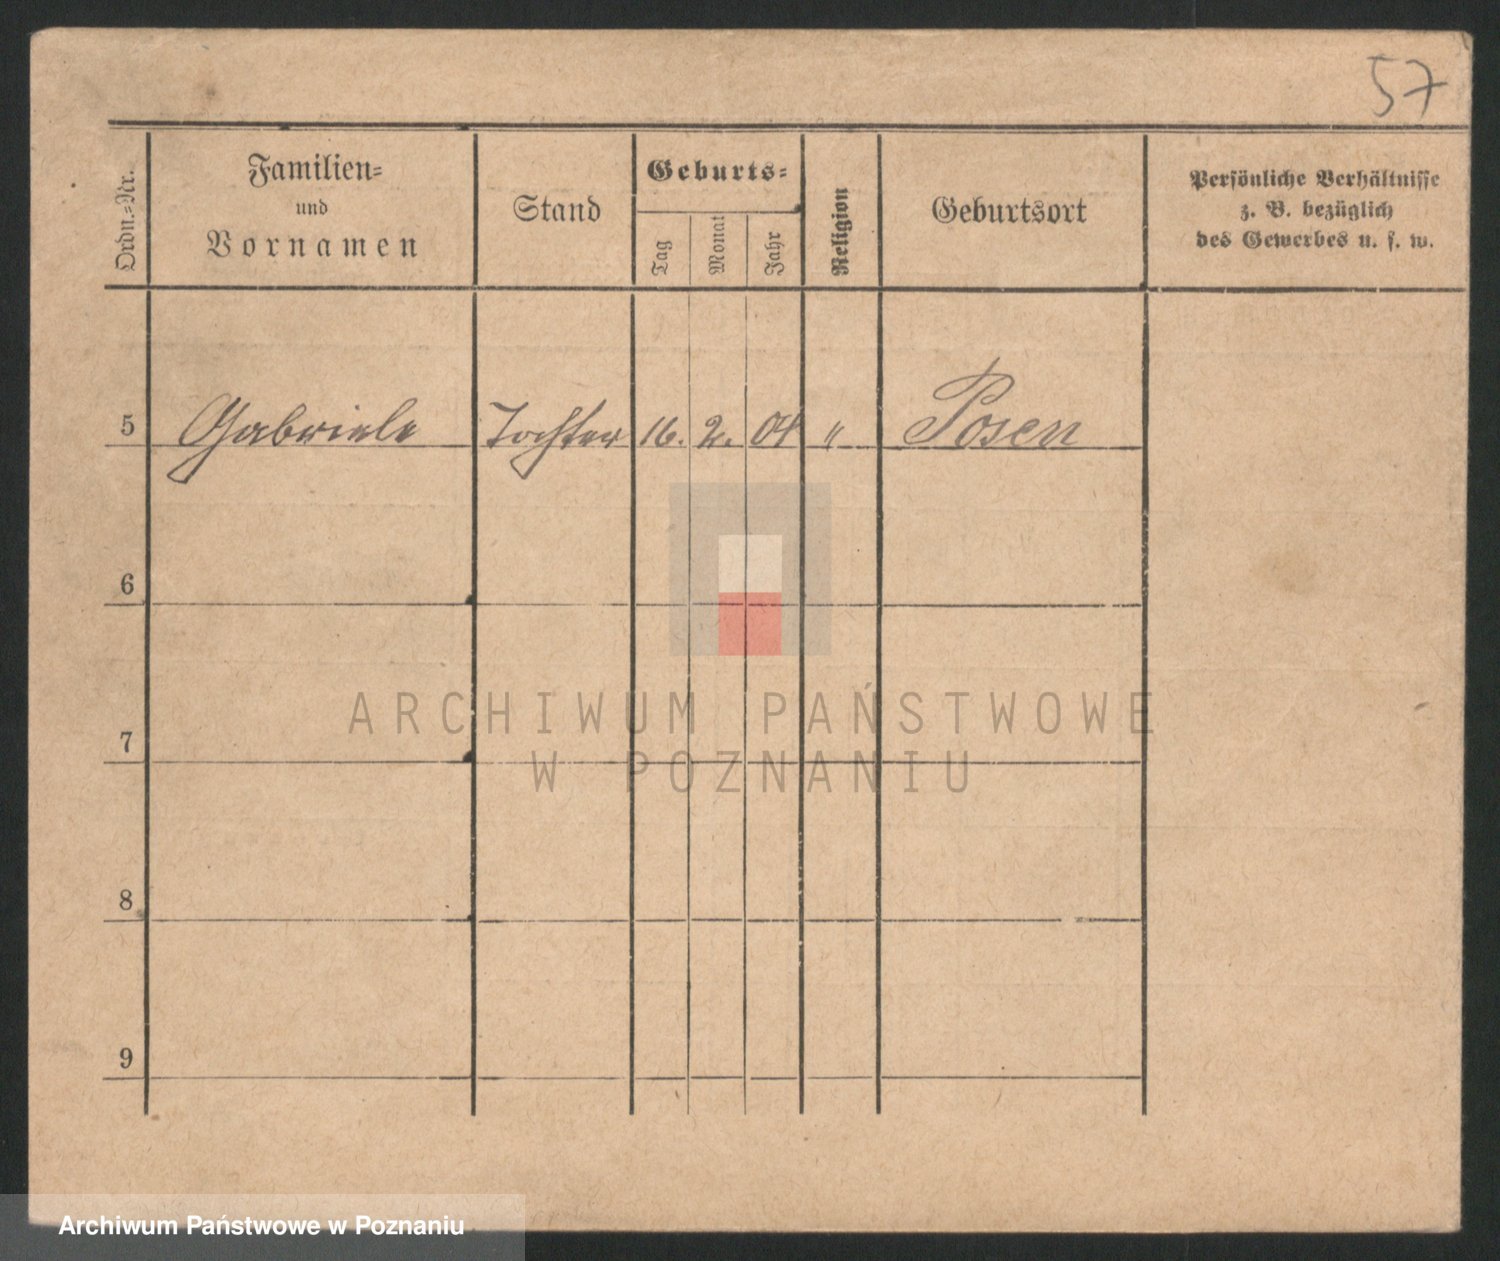 57
Ordn.-Nr.
Familien-
und
Vornamen
Stand
Geburts-
Tag
Monat
Jahr
Religion
Geburtsort
Persönliche Verhältnisse
z. B. bezüglich
des Gewerbes u. s. w.
5 Gabriele Tochter 16. 2. 04 " Posen
6
7
8
9
ARCHIWUM PAŃSTWOWE
W POZNANIU
Archiwum Państwowe w Poznaniu